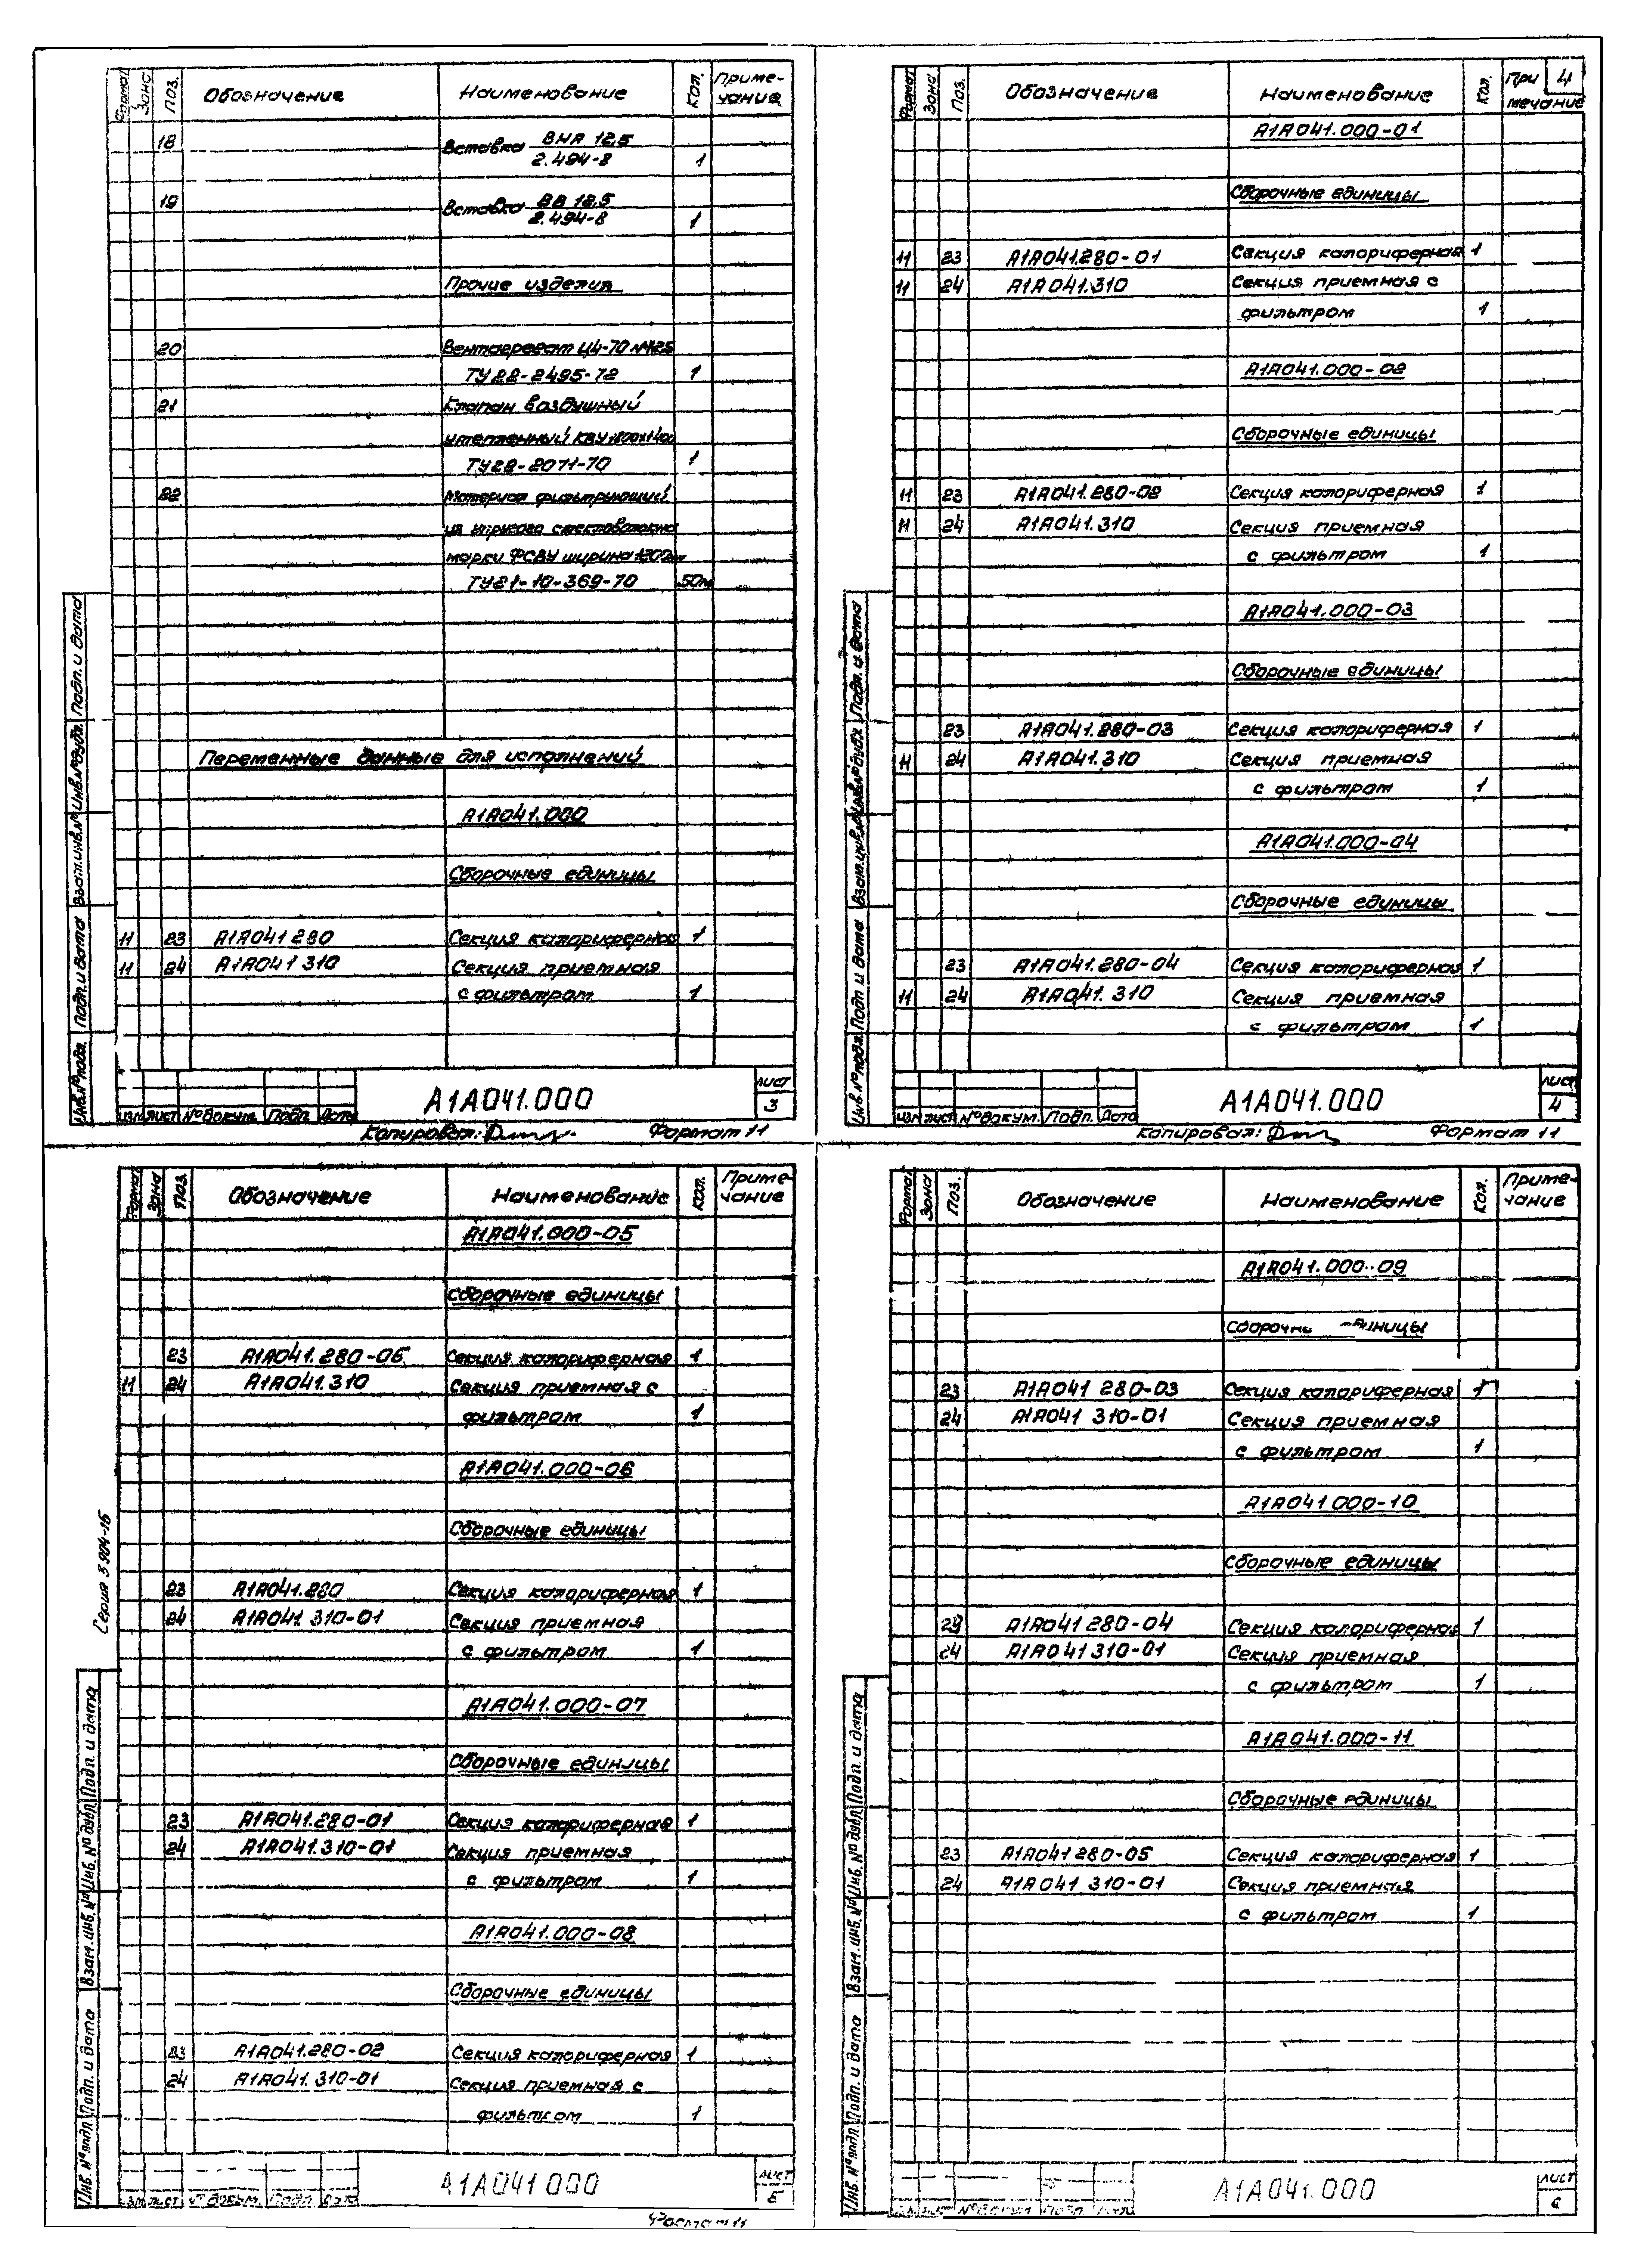 Формат Зона Поз. Обозначение Наименование Кол. Приме-
чание
18 Вставка ВНА 12,5
2.494-8 1
19 Вставка ВВ 12,5
2.494-8 1
Прочие изделия
20 Вентагрегат Ц4-70
ТУ22-2495-72 1
21 Клапан воздушный
утепленный КВУ 1800х1400
ТУ22-2071-70 1
22 Материал фильтрующий
из упругого стекловолокна
марки ФСВУ ширина
ТУ21-10-369-70 50м
Переменные данные для исполнений
А1А041.000
Сборочные единицы
11 23 А1А041 280 Секция калориферная 1
11 24 А1А041 310 Секция приемная
с фильтром 1
Инв.№ подл. Подп. и дата Взам.инв.№ Инв.№ дубл. Подп. и дата
А1А041.000
лист
3
Изм. лист № докум. Подп. Дата
Копировал: Формат 11
Формат Зона Поз. Обозначение Наименование Кол. При 4
мечание
А1А041.000-01
Сборочные единицы
11 23 А1А041.280-01 Секция калориферная 1
11 24 А1А041.310 Секция приемная с
фильтром 1
А1А041.000-02
Сборочные единицы
11 23 А1А041.280-02 Секция калориферная 1
11 24 А1А041.310 Секция приемная
с фильтром 1
А1А041.000-03
Сборочные единицы
23 А1А041.280-03 Секция калориферная 1
11 24 А1А041.310 Секция приемная
с фильтром 1
А1А041.000-04
Сборочные единицы
23 А1А041.280-04 Секция калориферная 1
11 24 А1А041.310 Секция приемная
с фильтром 1
Инв.№ подл. Подп. и дата Взам.инв.№ Инв.№ дубл. Подп. и дата
А1А041.000
лист
4
Изм. лист № докум. Подп. Дата
Копировал: Формат 11
Формат Зона Поз. Обозначение Наименование Кол. Приме-
чание
А1А041.000-05
Сборочные единицы
23 А1А041.280-05 Секция калориферная 1
11 24 А1А041.310 Секция приемная с
фильтром 1
А1А041.000-06
Сборочные единицы
23 А1А041.280 Секция калориферная 1
24 А1А041.310-01 Секция приемная
с фильтром 1
А1А041.000-07
Сборочные единицы
23 А1А041.280-01 Секция калориферная 1
24 А1А041.310-01 Секция приемная
с фильтром 1
А1А041.000-08
Сборочные единицы
23 А1А041.280-02 Секция калориферная 1
24 А1А041.310-01 Секция приемная с
фильтром 1
Серия 3.904-15
Инв.№ подл. Подп. и дата Взам.инв.№ Инв.№ дубл. Подп. и дата
А1А041.000
лист
5
Изм. лист № докум. Подп. Дата
Формат 11
Формат Зона Поз. Обозначение Наименование Кол. Приме-
чание
А1А041.000-09
Сборочн единицы
23 А1А041 280-03 Секция калориферная 1
24 А1А041 310-01 Секция приемная
с фильтром 1
А1А041 000-10
Сборочные единицы
23 А1А041 280-04 Секция калориферная 1
24 А1А041 310-01 Секция приемная
с фильтром 1
А1А041.000-11
Сборочные единицы
23 А1А041 280-05 Секция калориферная 1
24 А1А041 310-01 Секция приемная
с фильтром 1
Инв.№ подл. Подп. и дата Взам.инв.№ Инв.№ дубл. Подп. и дата
А1А041.000
лист
6
№ докум. Подп. Дата